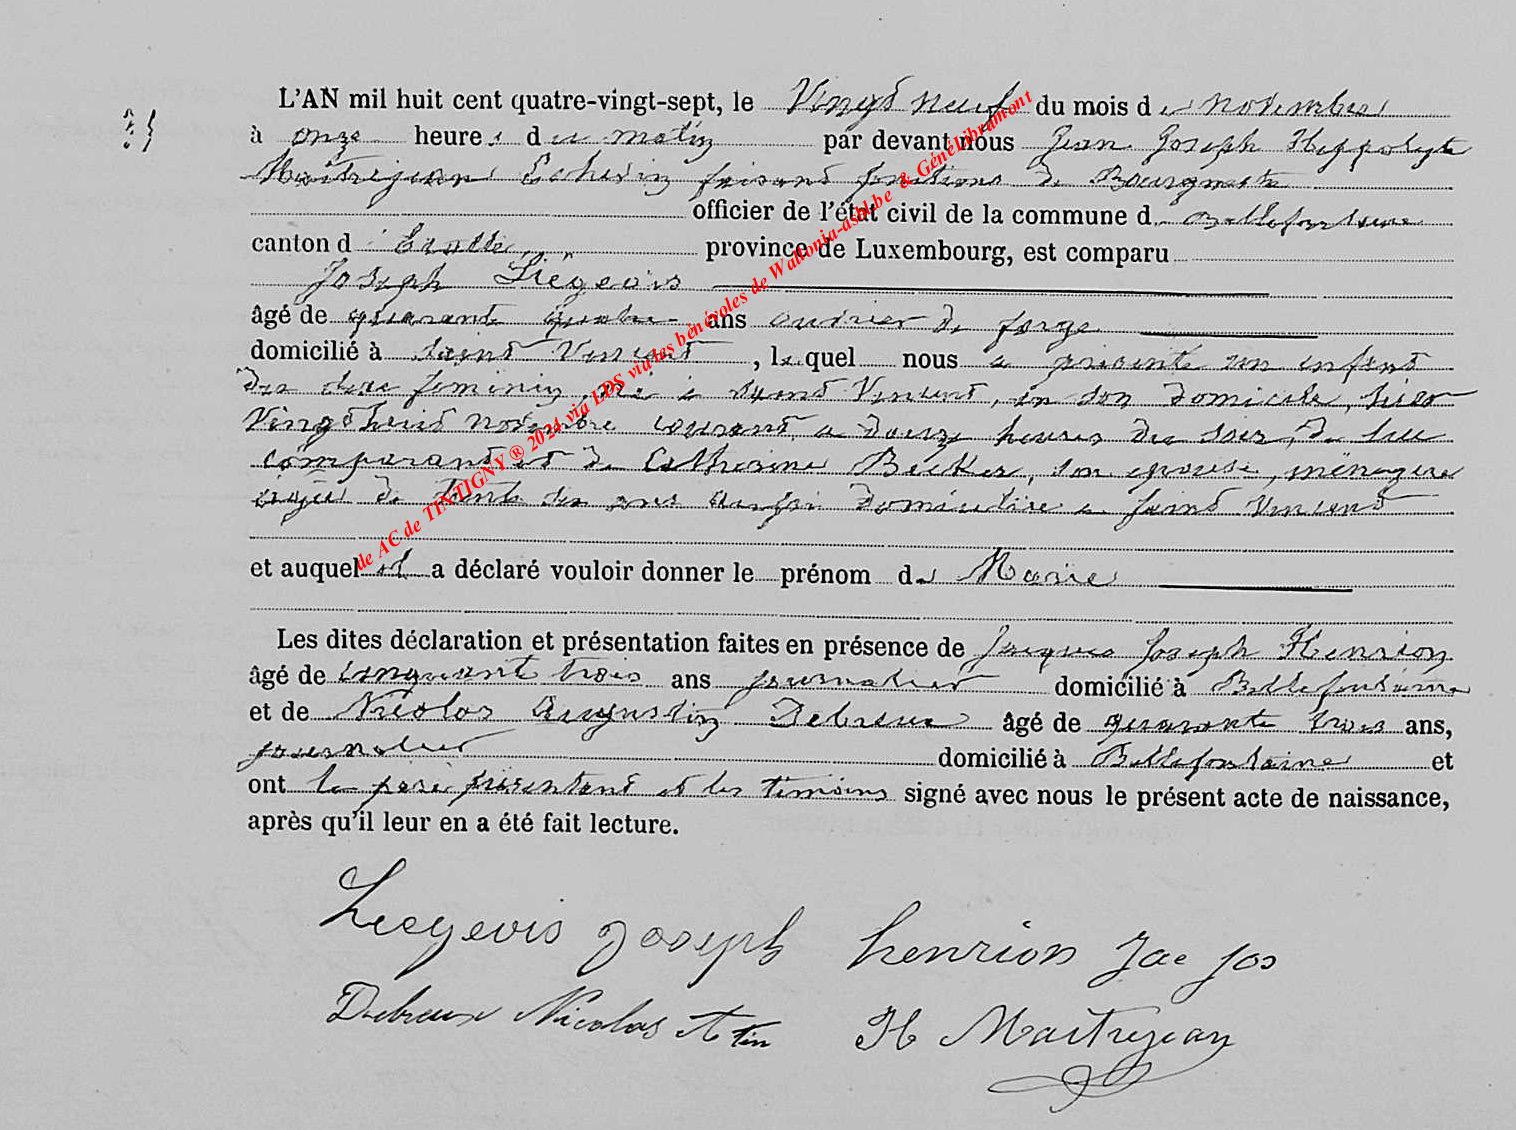 L'AN mil huit cent quatre-vingt-sept, le Vingt neuf du mois de novembre
à onze heures du matin par devant nous Jean Joseph Hippolyte
Maitrejean Echevin faisant fonctions de Bourgmestre
officier de l'état civil de la commune d Bellefontaine
canton d'Etalle province de Luxembourg, est comparu
Joseph Liégeois
âgé de quarante quatre ans ouvrier de forge
domicilié à Saint Vincent, lequel nous a présenté un enfant
du sexe feminin, né à Saint Vincent, en son domicile, hier
Vingt huit Novembre courant, a heures du soir, de lui
comparant et de Catherine Becker, son epouse, ménagère
âgée de trente ans aussi domiciliée a Saint Vincent
et auquel il a déclaré vouloir donner le prénom de Marie
Les dites déclaration et présentation faites en présence de Jacques Joseph Henrion
âgé de cinquante trois ans journalier domicilié à Bellefontaine
et de Nicolas Augustin Debreux âgé de quarante trois ans,
journalier domicilié à Bellefontaine et
ont le père présentant et les témoins signé avec nous le présent acte de naissance,
après qu'il leur en a été fait lecture.
Liegeois Joseph henrion Jac Jos
Debreux Nicolas Atin H Maitrejean
de AC de TINTIGNY ® 2024 via LDS via les bénévoles de Wallonia-asbl.be & GénéLibramont